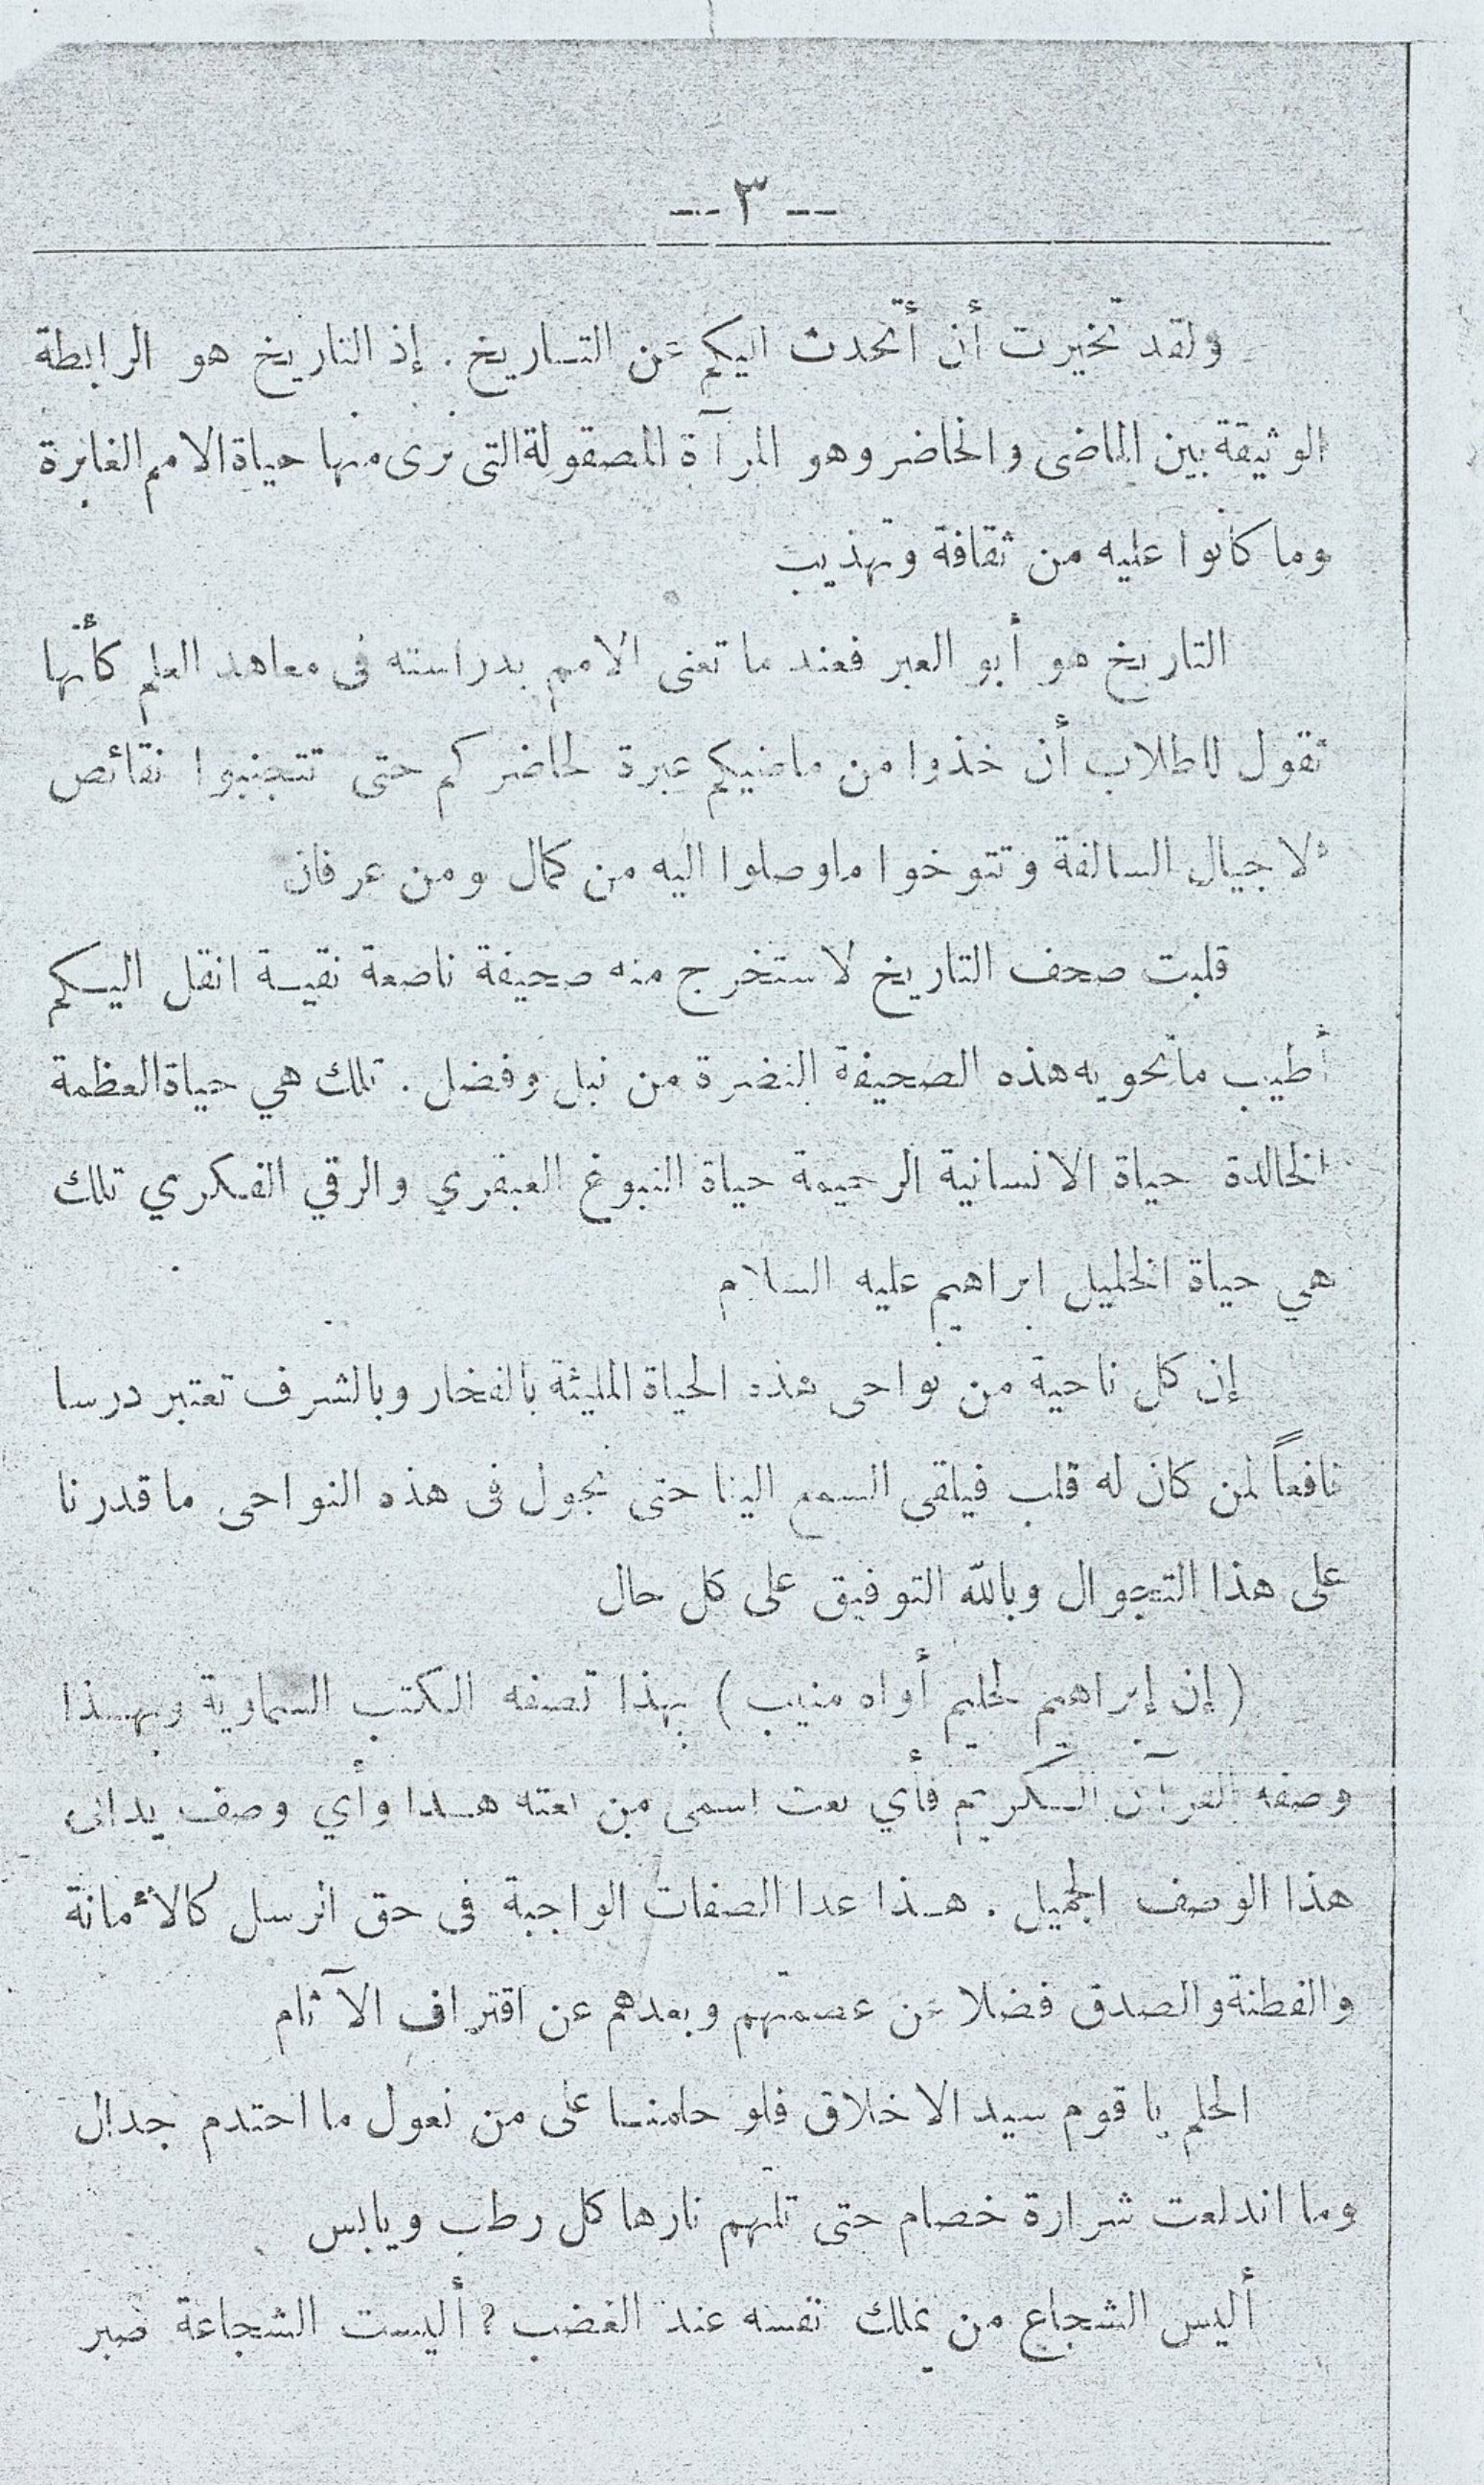 -- ٣ --
ولقد تخيرت أن أتحدث اليكم عن التاريخ . إذ التاريخ هو الرابطة
الوثيقة بين الماضى والحاضر وهو المرآة المصقولة التى نرى منها حياة الامم الغابرة
وما كانوا عليه من ثقافة وتهذيب
التاريخ هو أبو العبر فعند ما تعنى الامم بدراسته فى معاهد العلم كأنها
تقول للطلاب أن خذوا من ماضيكم عبرة لحاضركم حتى تتجنبوا نقائص
الاجيال السالفة وتتوخوا ماوصلوا اليه من كمال ومن عرفان
قلبت صحف التاريخ لاستخرج منه صحيفة ناصعة نقية انقل اليكم
أطيب ماتحويه هذه الصحيفة النضرة من نبل وفضل . تلك هي حياة العظمة
الخالدة حياة الانسانية الرحيمة حياة النبوغ العبقري والرقي الفكري تلك
هي حياة الخليل ابراهيم عليه السلام
إن كل ناحية من نواحى هذه الحياة المليئة بالفخار وبالشرف تعتبر درسا
نافعاً لمن كان له قلب فيلقى السمع الينا حتى نجول فى هذه النواحى ما قدرنا
على هذا التجوال وبالله التوفيق على كل حال
( إن إبراهيم لحليم أواه منيب ) بهذا تصفه الكتب السماوية وبهذا
وصفه القرآن الكريم فأي نعت اسمى من نعته هذا وأي وصف يدانى
هذا الوصف الجميل . هذا عدا الصفات الواجبة فى حق الرسل كالأمانة
والفطنة والصدق فضلا عن عصمتهم وبعدهم عن اقتراف الآثام
الحلم يا قوم سيد الاخلاق فلو حلمنا على من نعول ما احتدم جدال
وما اندلعت شرارة خصام حتى تلتهم نارها كل رطب ويابس
أليس الشجاع من يملك نفسه عند الغضب ? أليست الشجاعة صبر